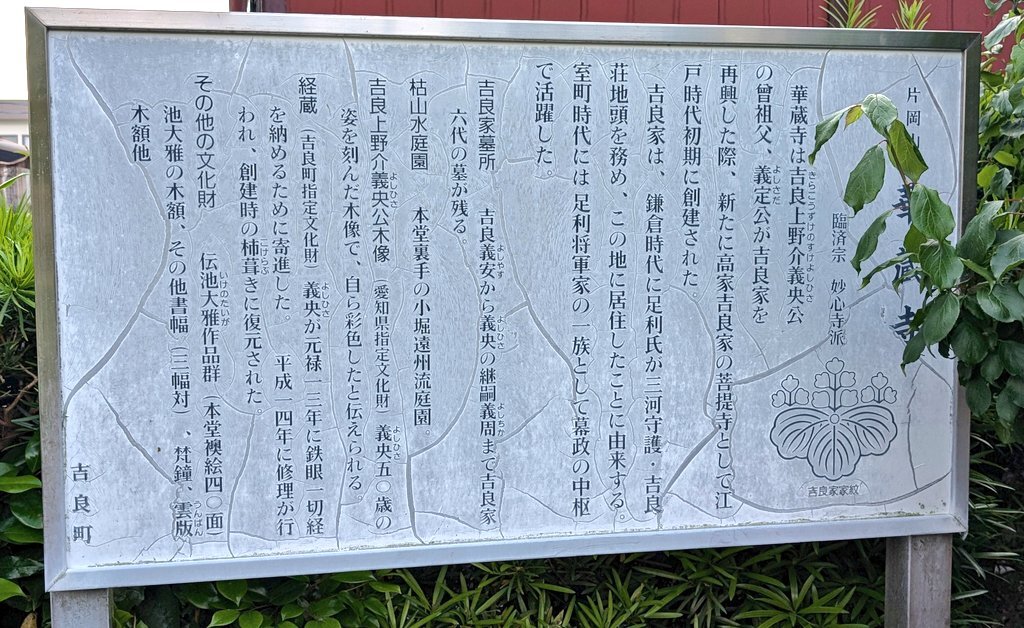 片岡山 華蔵寺
臨済宗 妙心寺派
華蔵寺は吉良上野介義央公
きらこうずけのすけよしひさ
の曽祖父、義定公が吉良家を
よしさだ
再興した際、新たに高家吉良家の菩提寺として江
戸時代初期に創建された。
吉良家は、鎌倉時代に足利氏が三河守護・吉良
荘地頭を務め、この地に居住したことに由来する。
室町時代には足利将軍家の一族として幕政の中枢
で活躍した。
吉良家墓所 吉良義安から義央の継嗣義周まで吉良家
よしやす よしひさ よしちか
六代の墓が残る。
枯山水庭園 本堂裏手の小堀遠州流庭園。
吉良上野介義央公木像(愛知県指定文化財)義央五〇歳の
よしひさ よしひさ
姿を刻んだ木像で、自ら彩色したと伝えられる。
経蔵(吉良町指定文化財)義央が元禄一三年に鉄眼一切経
よしひさ
を納めるために寄進した。 平成一四年に修理が行
われ、創建時の杮葺きに復元された。
こけらぶ
その他の文化財 伝池大雅作品群(本堂襖絵四〇面)
いけのたいが
池大雅の木額、その他書幅(三幅対)、梵鐘、雲版
うんぱん
木額他
吉良町
吉良家家紋